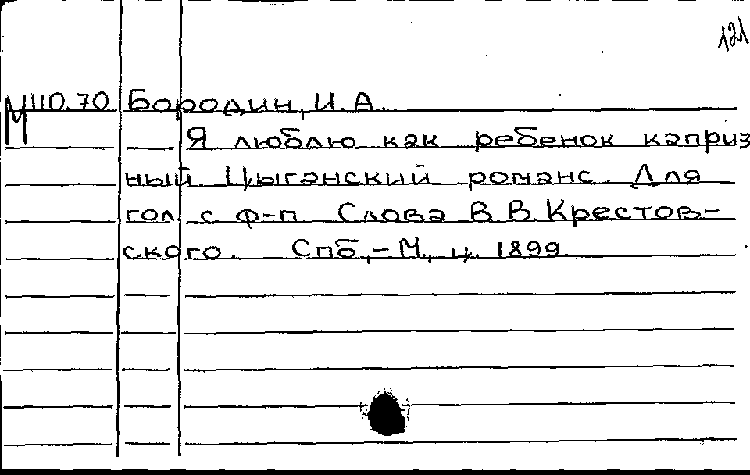 121
М110.70 Бородин, И. А.
Я люблю как ребенок каприз
ный Цыганский романс. Для
гол с ф-п Слова В В Крестов-
ского. Спб,-М, ц. 1899